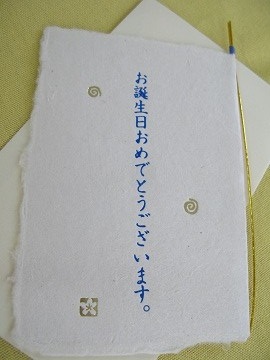 お誕生日おめでとうございます。